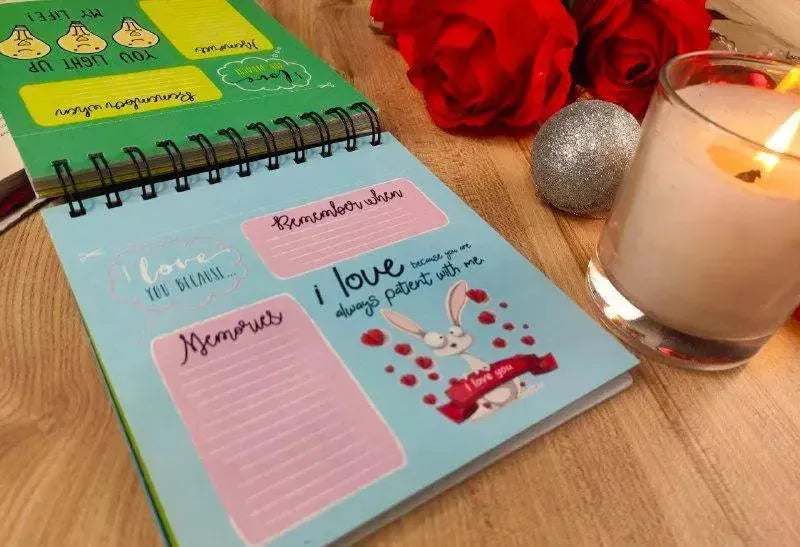 YOU LIGHT UP
MY LIFE!
Memories
Remember when
I love
I love
YOU BECAUSE...
Remember when
Memories
i love because you are
always patient with me
I love you